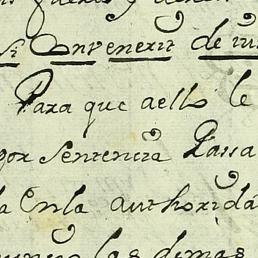 si Convenerit de iur
Para que aello le
por sentencia Passa
la enla authorida
las demas